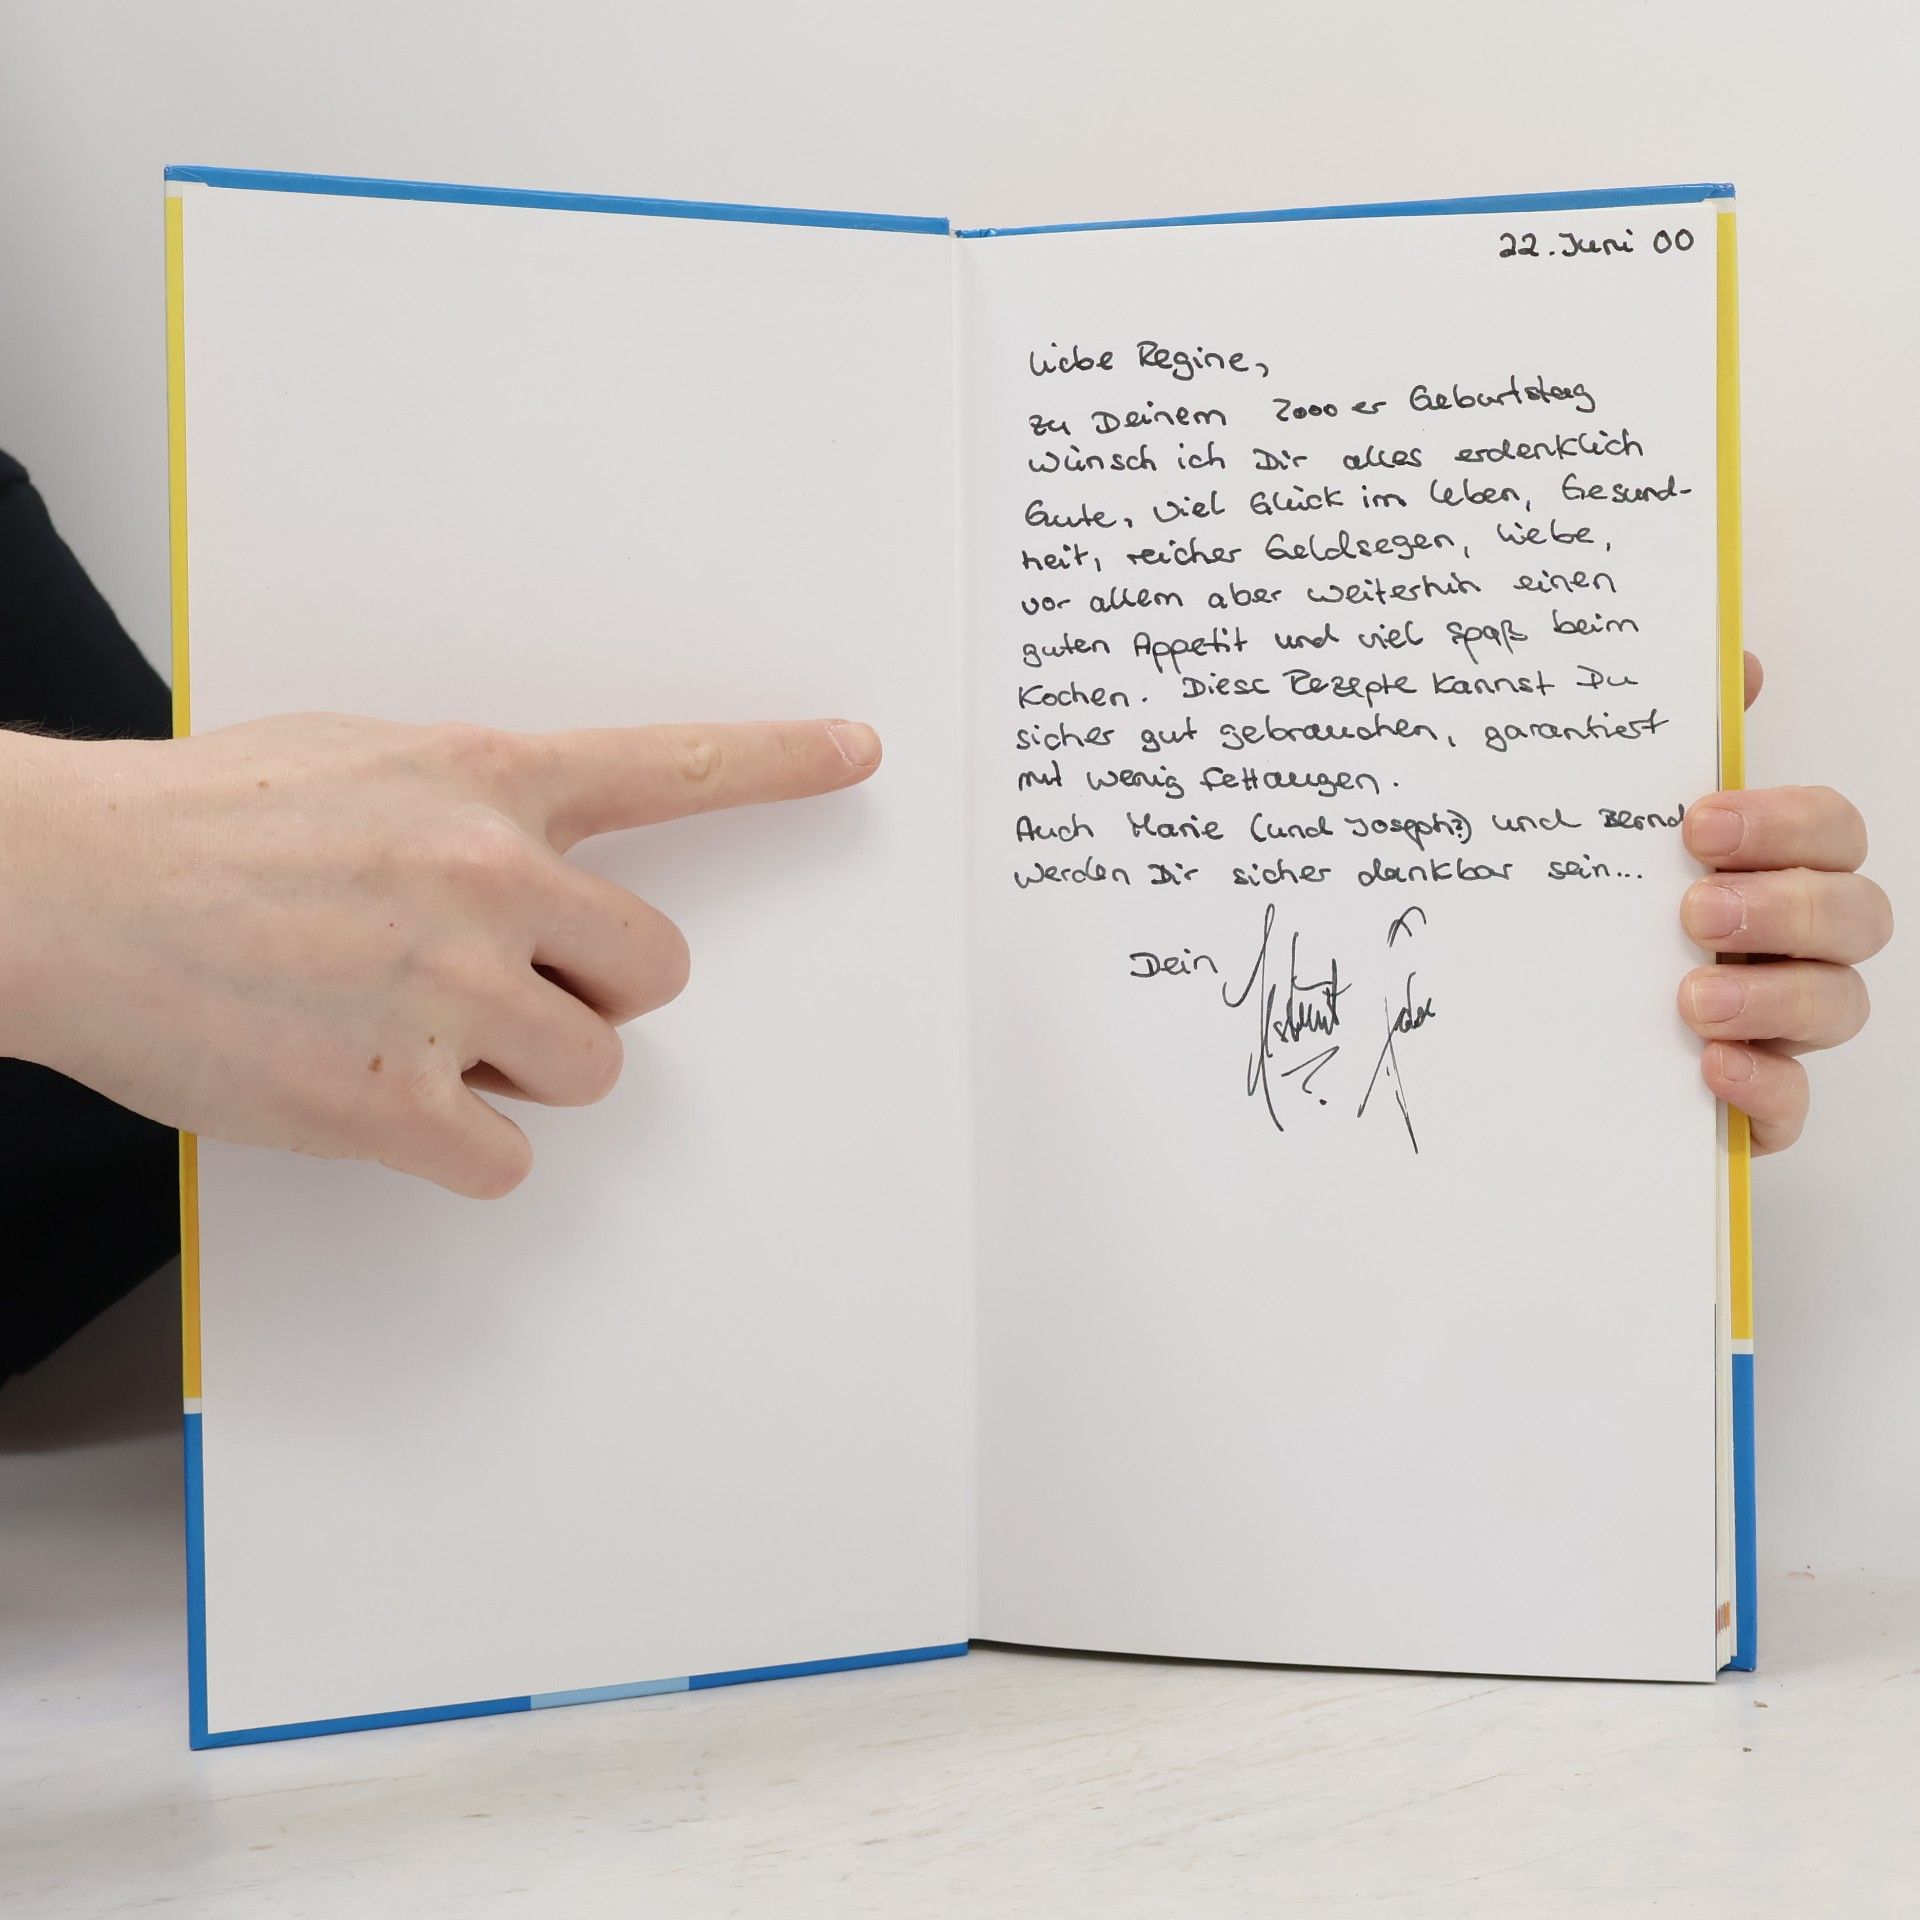 22. Juni 00
Liebe Regine,
zu Deinem 2000er Geburtstag
wünsch ich Dir alles erdenklich
Gute, viel Glück im Leben, Gesund-
heit, reicher Geldsegen, Liebe,
vor allem aber weiterhin einen
guten Appetit und viel Spaß beim
Kochen. Diese Rezepte kannst Du
sicher gut gebrauchen, garantiert
mit wenig Fettaugen.
Auch Marie (und Joseph?) und Bernd
werden Dir sicher dankbar sein...
Dein